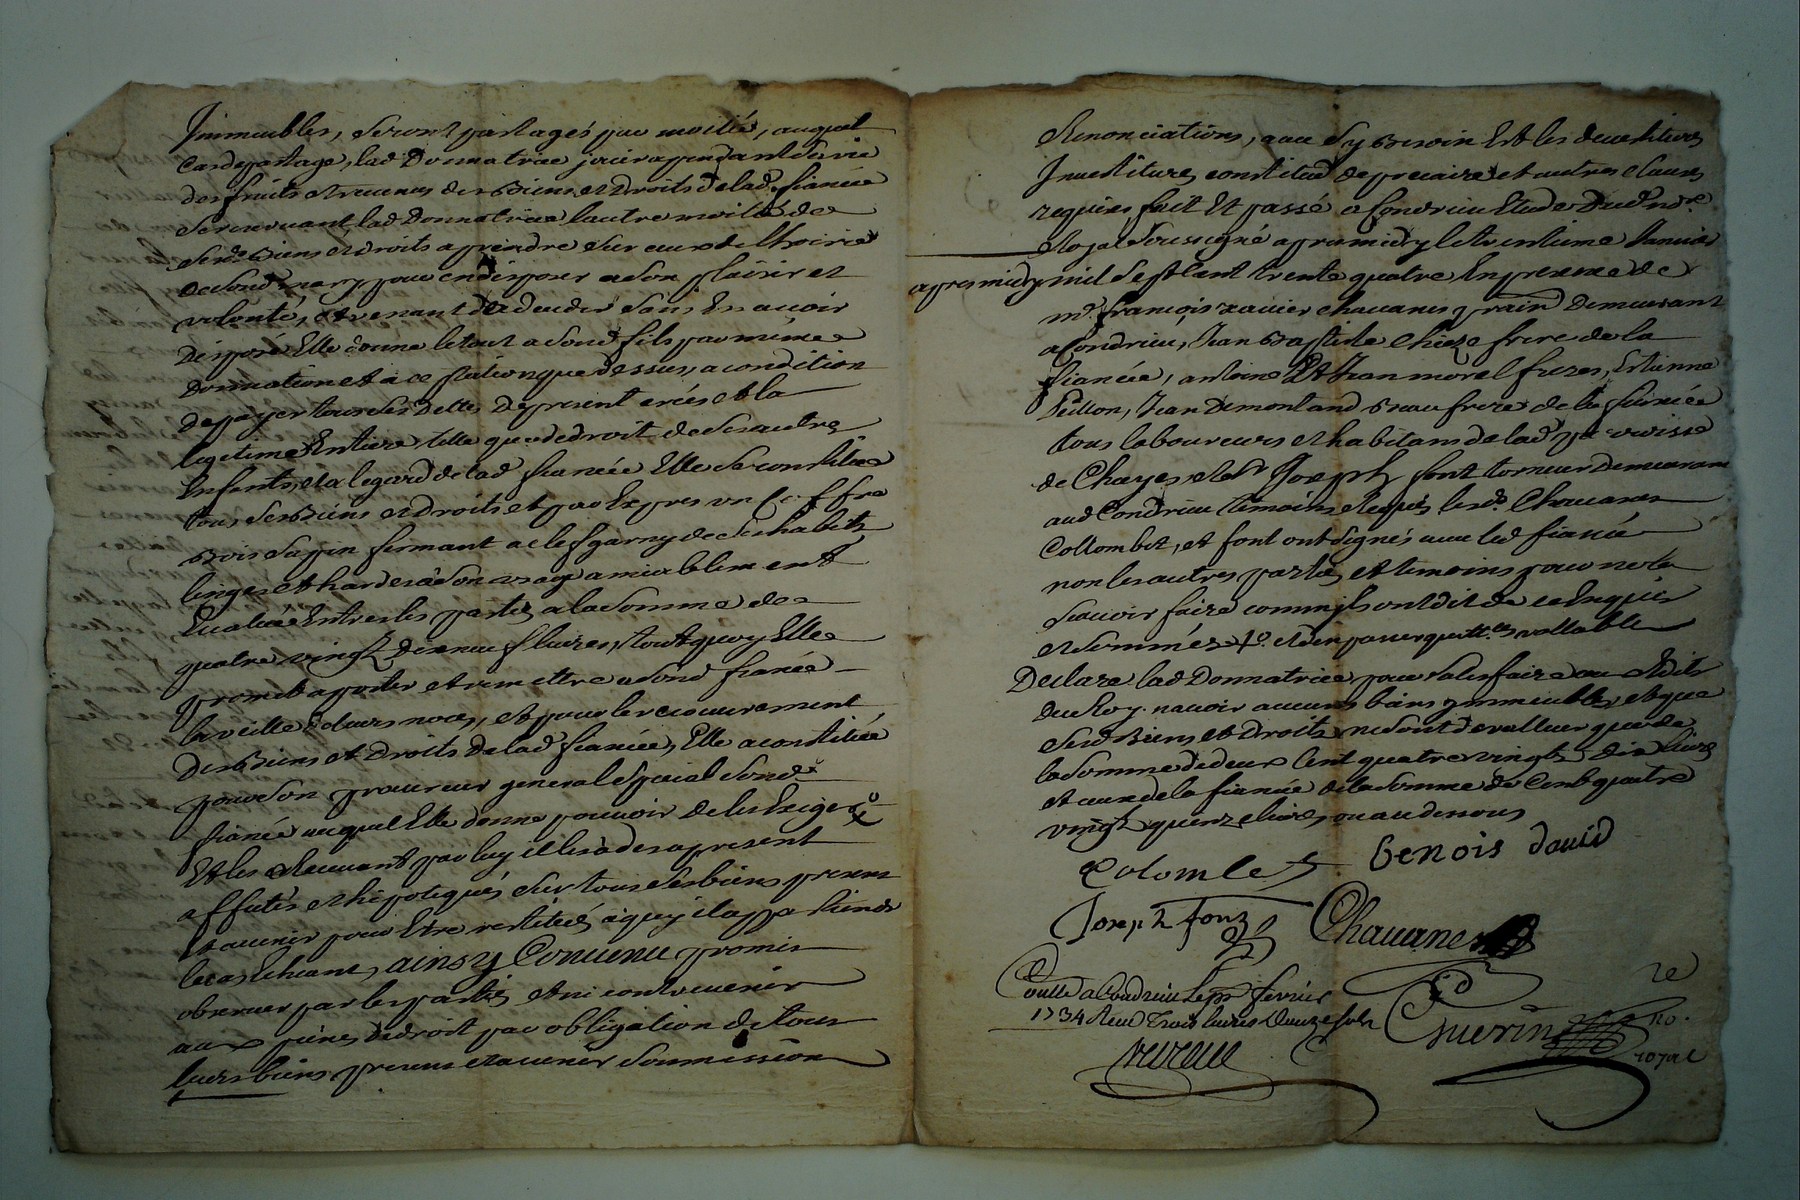 Immeubles, seront partagés par moitié, auquel
cas de partage, lad Donnatrice jouira pendant sa vie
des fruits et revenus des biens et droits de lad. fiancée
se reservant lad Donnatrice l'autre moitié de
sesd. biens et droits a prendre sur ceux de l'hoirie
de sond mary pour en disposer a son plaisir et
volonté, et venant a deceder sans en avoir
disposé Elle donne le tout a sond fils par mesme
donnation et a ce que dessus, a condition
de payer tous ses dettes de present créés et la
legitime Entiere telle que de droit de ses autres
Enfents, et a legard de lad fiancée Elle se constitue
tous ses biens et droits et par Expres un Coffre
bois sappin fermant a clef garny de ses habits
linges et hardes a son usage amiablement
Evaluée Entre les parties a la somme de
quatre vingt dixneuf livres, tout quoy Elle
promet apporter et remettre a sond fiancé
la veille de leurs noces, et pour le recouvrement
des biens et droits de lad fiancée, Elle a constitué
pour son procureur general special sond
fiancé auquel Elle donne pouvoir de les Exiger
Et les recevant par luy il les a des a present
affutés et hipotequés sur tous ses biens presens
et avenir pour Etre restitués a qui il appartiendra
le cas Echeant, ainsy Convenu promis
observer par les parties et ni contrevenir
aux peines de droit par obligation de tous
leurs biens presens et avenir soumissions
Renonciations, avec sy besoin Est les devestitures
Investitures constitué de precaire et autres clauses
requises fait Et passé a Condrieu Etude Dud no.re
Royal soussigné apres midy le trentieme Janvier
apres midy mil sept cent trente quatre En presence de
m.e françois xavier chavanes demeurant
a Condrieu, Jean Baptiste Chieze frere de la
fiancée, antoine Et Jean morel freres, Estienne
Peillon, Jean Demontand beau frere de la fiancée
tous laboureurs et habitans de lad parroisse
de Chayes, et sr Joseph font torneur demeurant
aud Condrieu temoins Requis, lesd. Chavanes
Collombet, et font ont signés avec led fiancé
non les autres parties et temoins pour ne le
sçavoir faire comm'ils ont dit de ce Enquis
et sommés
Declare lad Donnatrice pour satisfaire au Edits
du Roy navoir aucuns biens immeubles et que
sesd biens et Droits ne sont de valleur que de
la somme de deux Cent quatre vingts dix livres
et ceux de la fiancée de la somme de Cent quatre
vingt quinze livres, ou au dessous
Colomlet benois david
Joseph fond Chavanes
Con.lle a Condrieu le fevrier
1734 Reçu Trois livres Douze sols Guerin no. re
royal